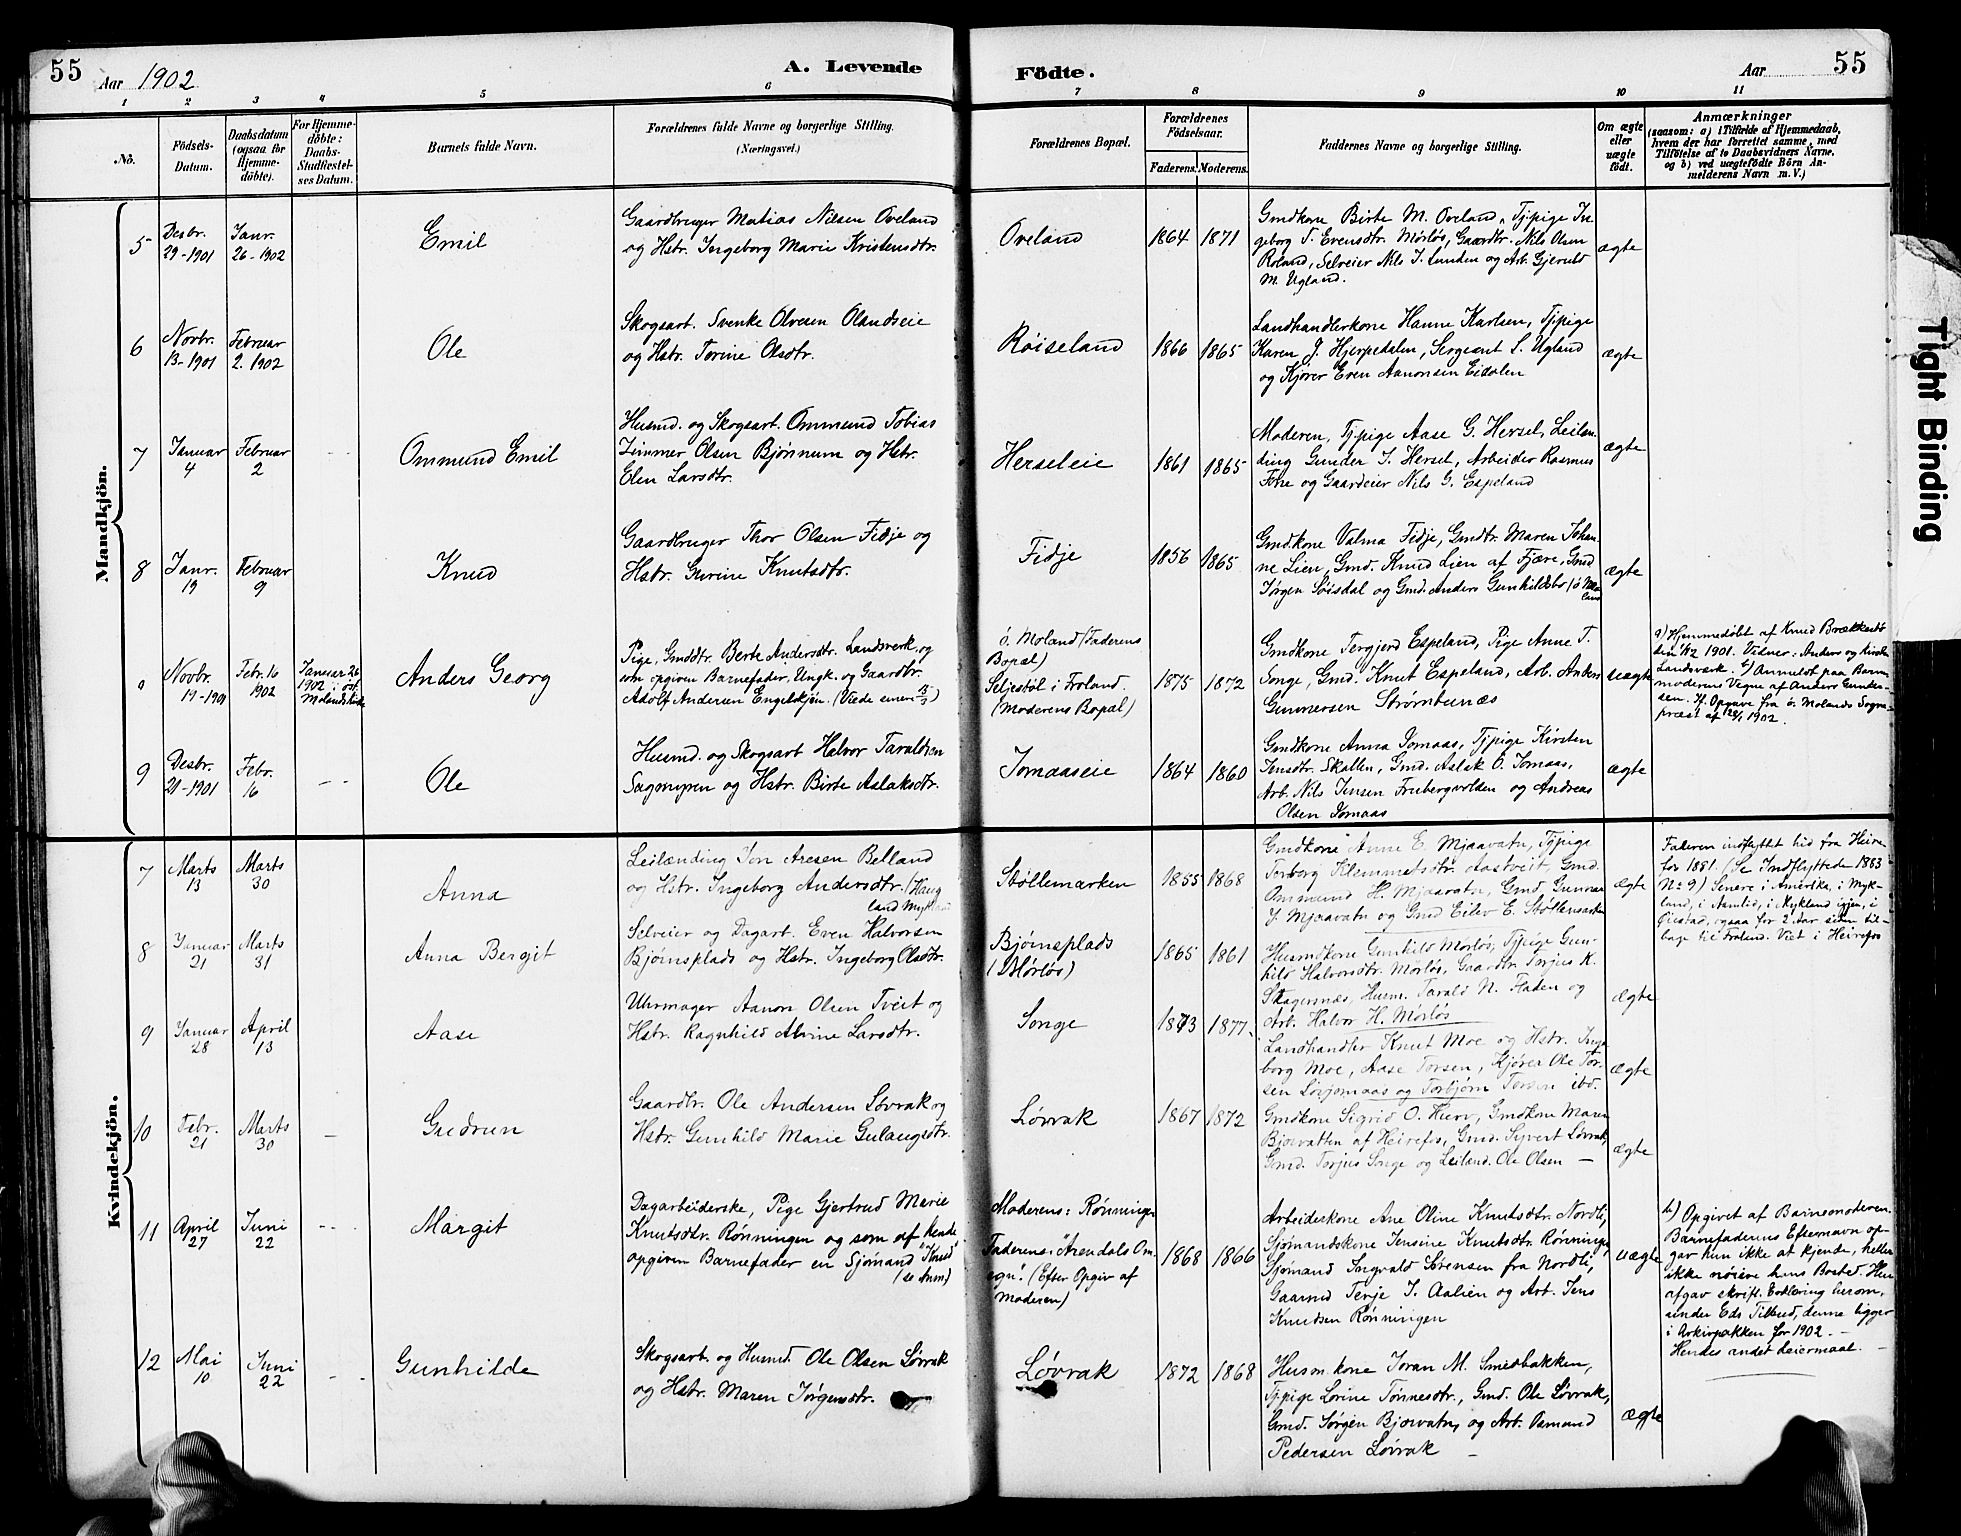 55
Aar 1902
A. Levende
Födte.
Aar
55
1 2 3 4 5 6 7 8 9 10 11
No.
Födsels-
Datum.
Daabsdatum
(ogsaa for
Hjemme-
döbte).
For Hjemme-
döbte:
Daabs-
Stadfæstel-
ses Datum.
Barnets fulde Navn.
Forældrenes fulde Navne og borgerlige Stilling.
(Næringsvei.)
Forældrenes Bopæl.
Forældrenes
Födselsaar.
Faderens. Moderens.
Faddernes Navne og borgerlige Stilling.
Om ægte
eller
uægte
födt.
Anmærkninger
(saasom: a) i Tilfælde af Hjemmedaab,
hvem der har forrettet samme, med
Tilföielse af to Daabsvidners Navne,
og b) ved uægtefödte Börn An-
melderens Navn m. V.)
Mandkjön.
5
Desbr.
29-1901
Janr.
26-1902
Emil
Gaardbruger Matias Nilsen Oveland
og Hstr. Ingeborg Marie Kristensdtr.
Oveland
1864
1871
Gmdkone Birte M. Oveland, Tjpige In-
geborg T. Evensdtr. Mørløs, Gaardbr. Nils Olsen
Roland, Selveier Nils J. Lunden og Arb. Gjeruld
M. Ugland.
ægte
6
Novbr.
13-1901
Februar
2. 1902
Ole
Skogsarb. Svenke Olvesen Olandseie
og Hstr. Torine Olsdtr.
Røiseland
1866
1865
Landhandlerkone Hanne Karlsen, Tjpige
Karen J. Hjerpedalen, Sergeant S. Ugland
og Kjører Even Aanonsen Eidalen
ægte
7
Januar
4
Februar
2
Ommund Emil
Husmd. og Skogsarb. Ommund Tobias
Zimmer Olsen Bjønnum og Hstr.
Elen Larsdtr.
Herseleie
1861
1865
Moderen, Tj.pige Aase G. Hersel, Leilæn-
ding Gunder J. Hersel, Arbeider Rasmus
Tone og Gaardeier Nils G. Espeland
ægte
8
Janr.
19
Februar
9
Knud
Gaardbruger Thor Olsen Fidje og
Hstr. Gurine Knutsdtr.
Fidje
1856
1865
Gmd.kone Valma Fidje, Gmdtr. Maren Johan-
ne Lien, Gmd. Knud Lien af Fjære, Gmd
Jørgen Løisdal og Gmd. Anders Gunhildsbo (ö Mo-
land
ægte
Novbr.
19-1901
Febr. 16
1902
Januar 26
1902 i öst.
Molands kirke
Anders Georg
Pige, Gmddtr. Berte Andersdtr. Landsverk, og
som opgiven Barnefader, Ungk. og Gaardbr.
Adolf Andersen Engelskjøn.
ö. Moland (Faderens
Bopæl)
Seljesbøl i Froland.
(Moderens Bopæl)
1875
1872
Gmdkone Tergjerd Espeland, Pige Anne T.
Songe, Gmd. Knut Espeland, Arb. Anken
Gunnersen Strømbunæs
uægte
a) Hjemmedøbt af Knud Brækkestø
den 1901. Vidner: Anders og
Landsverk. b) Anmeldt paa Barne-
moderens Vegne af Anders Gunder-
sen. If. Opgave fra ö. Molands Sogne-
præst af 28/1 1902.
9
Desbr.
21-1901
Febr.
16
Ole
Husmd. og Skogsarb Halvor Taraldsen
Sagmyren og Hstr. Birte Aslaksdtr.
Jomaaseie
1864
1860
Gmdkone Anna Jomaas, Tjpige Kirsten
Jensdtr. Skallen, Gmd. Aslak O. Jomaas,
Arb. Nils Jensen Frubergvolden og Andreas
Olsen Jomaas
ægte
Kvindekjön.
7
Marts
13
Marts
30
Anna
Leilænding Jon Aresen Belland
og Hstr. Ingeborg Andersdtr. (Haug
land Mykland
Støllemarken
1855
1868
Gmdkone Anne E. Mjaavatn, Tjpige
Torborg Klemmetsdtr. Aastveit, Gmd.
Ommund H. Mjaavatn, Gmd. Gunnar
J. Mjaavatn og Gmd Eilev E. Støllemarken
ægte
Faderen indflyttet hid fra Heire-
fos 1881. (Se Indflyttede 1883
No 9) Senere i Amerika, i Myk-
land, i Aamlid, i Mykland igjen, i
Øiestad, ogsaa for 2 Aar siden til-
bage til Froland. Viet i Heirefos
8
Januar
21
Marts
31
Anna Bergit
Selveier og Dagarb. Even Halvorsen
Bjørnsplads og Hstr. Ingeborg Olsdtr.
Bjørnsplads
(Mørløs)
1865
1861
Husmdkone Gunhild Mørløs, Tjpige Gun-
hild Halvorsdtr. Mørløs, Gaardbr. Torjus K.
Skagersnæs, Husm. Tarald N. Fladen og
Arb. Halvor H. Mørløs
ægte
9
Januar
28
April
13
Aase
Uhrmager Aanon Olsen Tveit og
Hstr. Ragnhild Alvine Larsdtr.
Songe
1873
1877
Landhandler Knut Moe og Hstr. Inge-
borg Moe, Aase Torsen, Kjører Ole Tor-
sen Lorjomaas og Torbjørn Torsen ibd.
ægte
10
Febr.
21
Marts
30
Gudrun
Gaardbr. Ole Andersen Løvrak og
Hstr. Gunhild Marie Gulaugsdtr.
Løvrak
1867
1872
Gmdkone Sigrid O. Hurv, Gmdkone Maren
Bjorvatten af Heirefos, Gmd. Syvert Løvrak,
Gmd. Torjus Songe og Leiland. Ole Olsen —
ægte
11
April
27
Juni
22
Margit
Dagarbeiderske, Pige Gjertrud Marie
Knutsdtr. Rønningen og som af hende
opgiven Barnefader en Sjømand "Knud"
(se Anm)
Moderens: Rønningen
Faderens: "Arendals Om-
egn". (Efter Opgiv af
Moderen)
1868
1866
Arbeiderkone Ane Oline Knutsdtr. Nordli,
Sjømandskone Jensine Knutsdtr. Rønningen
Sjømand Ingvald Sørensen fra Nordli,
Gaarmd Terje J. Aalien og Arb. Jens
Knudsen Rønningen
uægte
b) Opgivet af Barnemoderen.
Barnefaderens Efternavn op-
gav hun ikke at kjende, heller
ikke nøiere hans Bosted. Hun
afgav skriftl. Erklæring herom,
under Eds Tilbud, denne ligger
i Arkivpakken for 1902. —
Hendes andet Leiermaal. —
12
Mai
10
Juni
22
Gunhilde
Skogsarb. og Husmd. Ole Olsen Løvrak
og Hstr. Maren Jørgensdtr.
Løvrak
1872
1868
Husm.kone Joran M. Smedbakken,
Tjpige Lorine Tønnesdtr., Gmd. Ole Løvrak,
Gmd. Jørgen Bjorvatn, og Arb. Osmund
Pedersen Løvrak —
ægte
Tight Binding